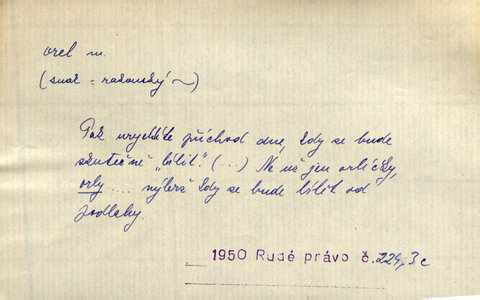 orel m.
(znak = rakouský ~)
Pak urychlíte příchod dne, kdy se bude
skutečně "bílit". (...) Ne už jen orlíčky,
orly .... nýbrž kdy se bude bílit od
podlahy.
1950 Rudé právo č. 224, 3 c